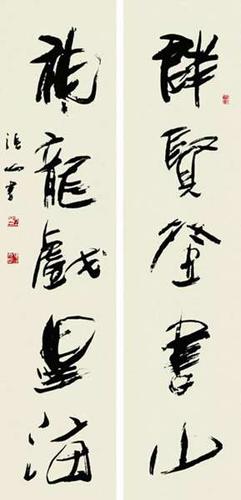 群賢登書山
神龍戲墨海